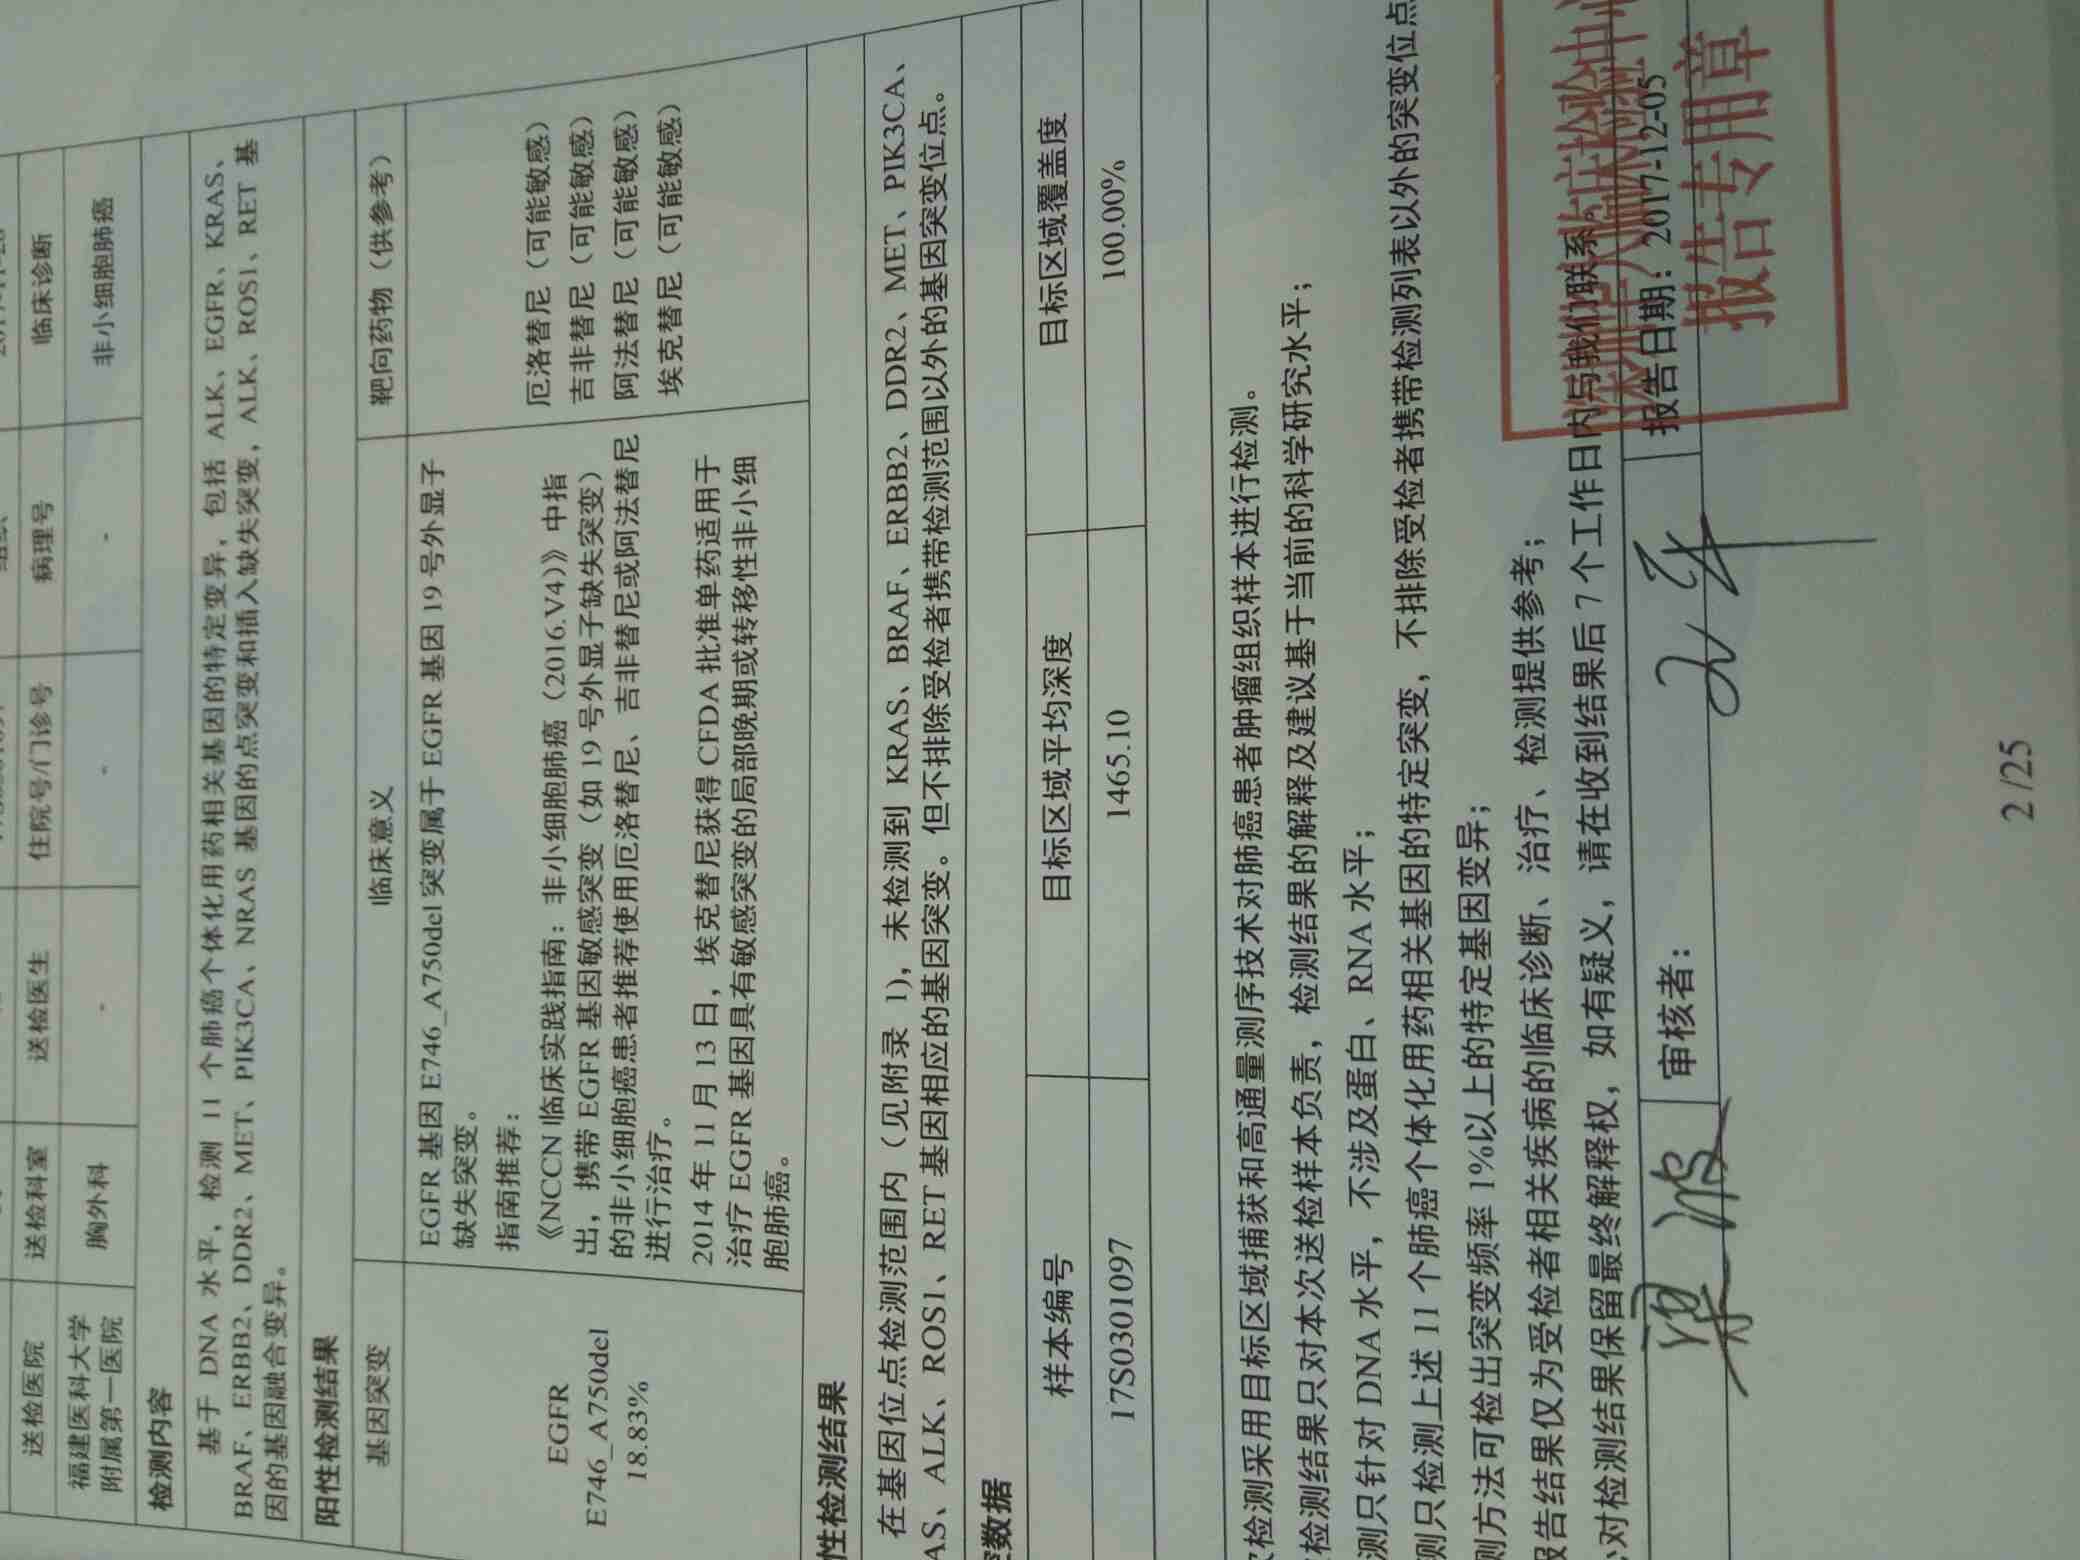 送检医院 送检科室 送检医生 住院号/门诊号 病理号 临床诊断
福建医科大学
附属第一医院
胸外科 - - - 非小细胞肺癌
检测内容
基于 DNA 水平，检测 11 个肺癌个体化用药相关基因的特定变异，包括 ALK、EGFR、KRAS、
BRAF、ERBB2、DDR2、MET、PIK3CA、NRAS 基因的点突变和插入缺失突变，ALK、ROS1、RET 基
因的基因融合变异。
阳性检测结果
基因突变 临床意义 靶向药物（供参考）
EGFR
E746_A750del
18.83%
EGFR 基因 E746_A750del 突变属于 EGFR 基因 19 号外显子
缺失突变。
指南推荐：
《NCCN 临床实践指南：非小细胞肺癌（2016.V4）》中指
出，携带 EGFR 基因敏感突变（如 19 号外显子缺失突变）
的非小细胞癌患者推荐使用厄洛替尼、吉非替尼或阿法替尼
进行治疗。
2014 年 11 月 13 日，埃克替尼获得 CFDA 批准单药适用于
治疗 EGFR 基因具有敏感突变的局部晚期或转移性非小细
胞肺癌。
厄洛替尼（可能敏感）
吉非替尼（可能敏感）
阿法替尼（可能敏感）
埃克替尼（可能敏感）
性检测结果
在基因位点检测范围内（见附录 1），未检测到 KRAS、BRAF、ERBB2、DDR2、MET、PIK3CA、
AS、ALK、ROS1、RET 基因相应的基因突变。但不排除受检者携带检测范围以外的基因突变位点。
数据
样本编号 目标区域平均深度 目标区域覆盖度
17S0301097 1465.10 100.00%
检测采用目标区域捕获和高通量测序技术对肺癌患者肿瘤组织样本进行检测。
检测结果只对本次送检样本负责，检测结果的解释及建议基于当前的科学研究水平；
测只针对 DNA 水平，不涉及蛋白、RNA 水平；
测只检测上述 11 个肺癌个体化用药相关基因的特定突变，不排除受检者携带检测列表以外的突变位点
测方法可检出突变频率 1%以上的特定基因变异；
报告结果仅为受检者相关疾病的临床诊断、治疗、检测提供参考；
对检测结果保留最终解释权，如有疑义，请在收到结果后 7 个工作日内与我们联系。
审核者： 报告日期：2017-12-05
报告专用章
2 /25